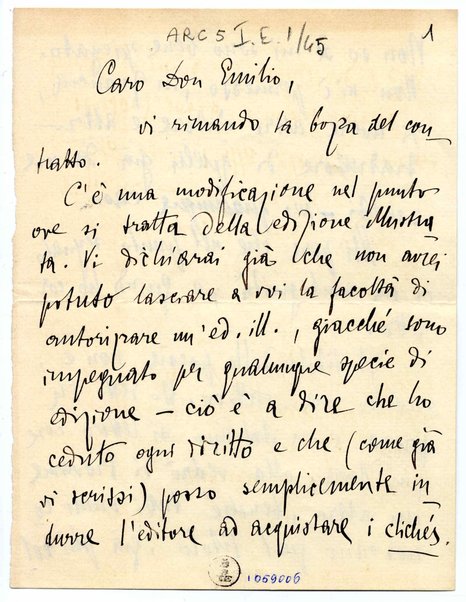 ARC 5 I.E. 1/45
1
Caro Don Emilio,
vi rimando la boza del con-
tratto.
C'è una modificazione nel punto
ove si tratta della edizione illustra
ta. Vi dichiarai già che non avrei
potuto lasciare a voi la facoltà di
autorizzare un'ed. ill., giacché sono
impegnato per qualunque specie di
edizione – ciò è a dire che ho
ceduto ogni diritto e che (come già
vi scrissi) posso semplicemente in
durre l'editore ad acquistare i clichés.
1059006